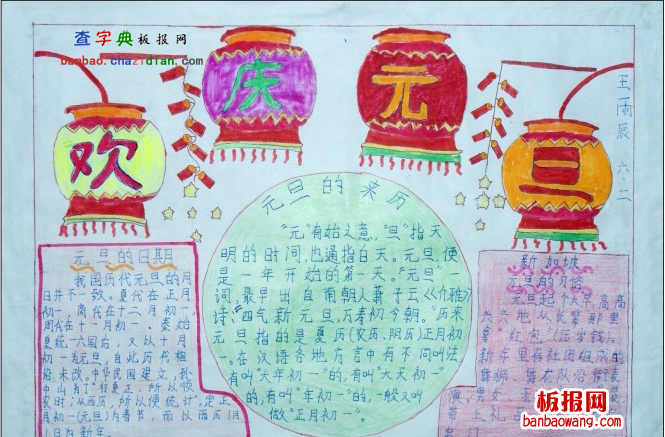 查字典板报网
banbao.chazidian.com
欢
庆
元
旦
王雨辰
六.二
元旦的日期
我国历代元旦的月
日并不一致。夏代在正月
初一,商代在十二月初一,
周代在十一月初一,秦始
皇统一六国后,又以十月
初一为元旦,自此历代相
沿未改,中华民国建立,孙
中山为了"行夏正,所以顺
农时;从西历,所以便统计",定正
月初一(元旦)为春节,而以西历1月
1日为新年。
元旦的来历
"元"有始之意,"旦"指天
明的时间,也通指白天。元旦,便
是一年开始的第一天。"元旦"一
词,最早出自南朝人萧子云《介雅》
诗:"四气新元旦,万寿初今朝。"历来
元旦指的是夏历(农历、阴历)正月初
一。在汉语各地方言中有不同叫法,
有叫"大年初一"的,有叫"大天初一"
的,有叫"年初一"的,一般又叫
做"正月初一"。
新加坡
元旦的习俗
元旦起个大早,高高
兴兴地从长辈那里
拿"红包"(压岁钱)。
新年里有社团组成的
舞狮、舞龙队沿街
男女
带上礼
门
板报网
banbaowang.com